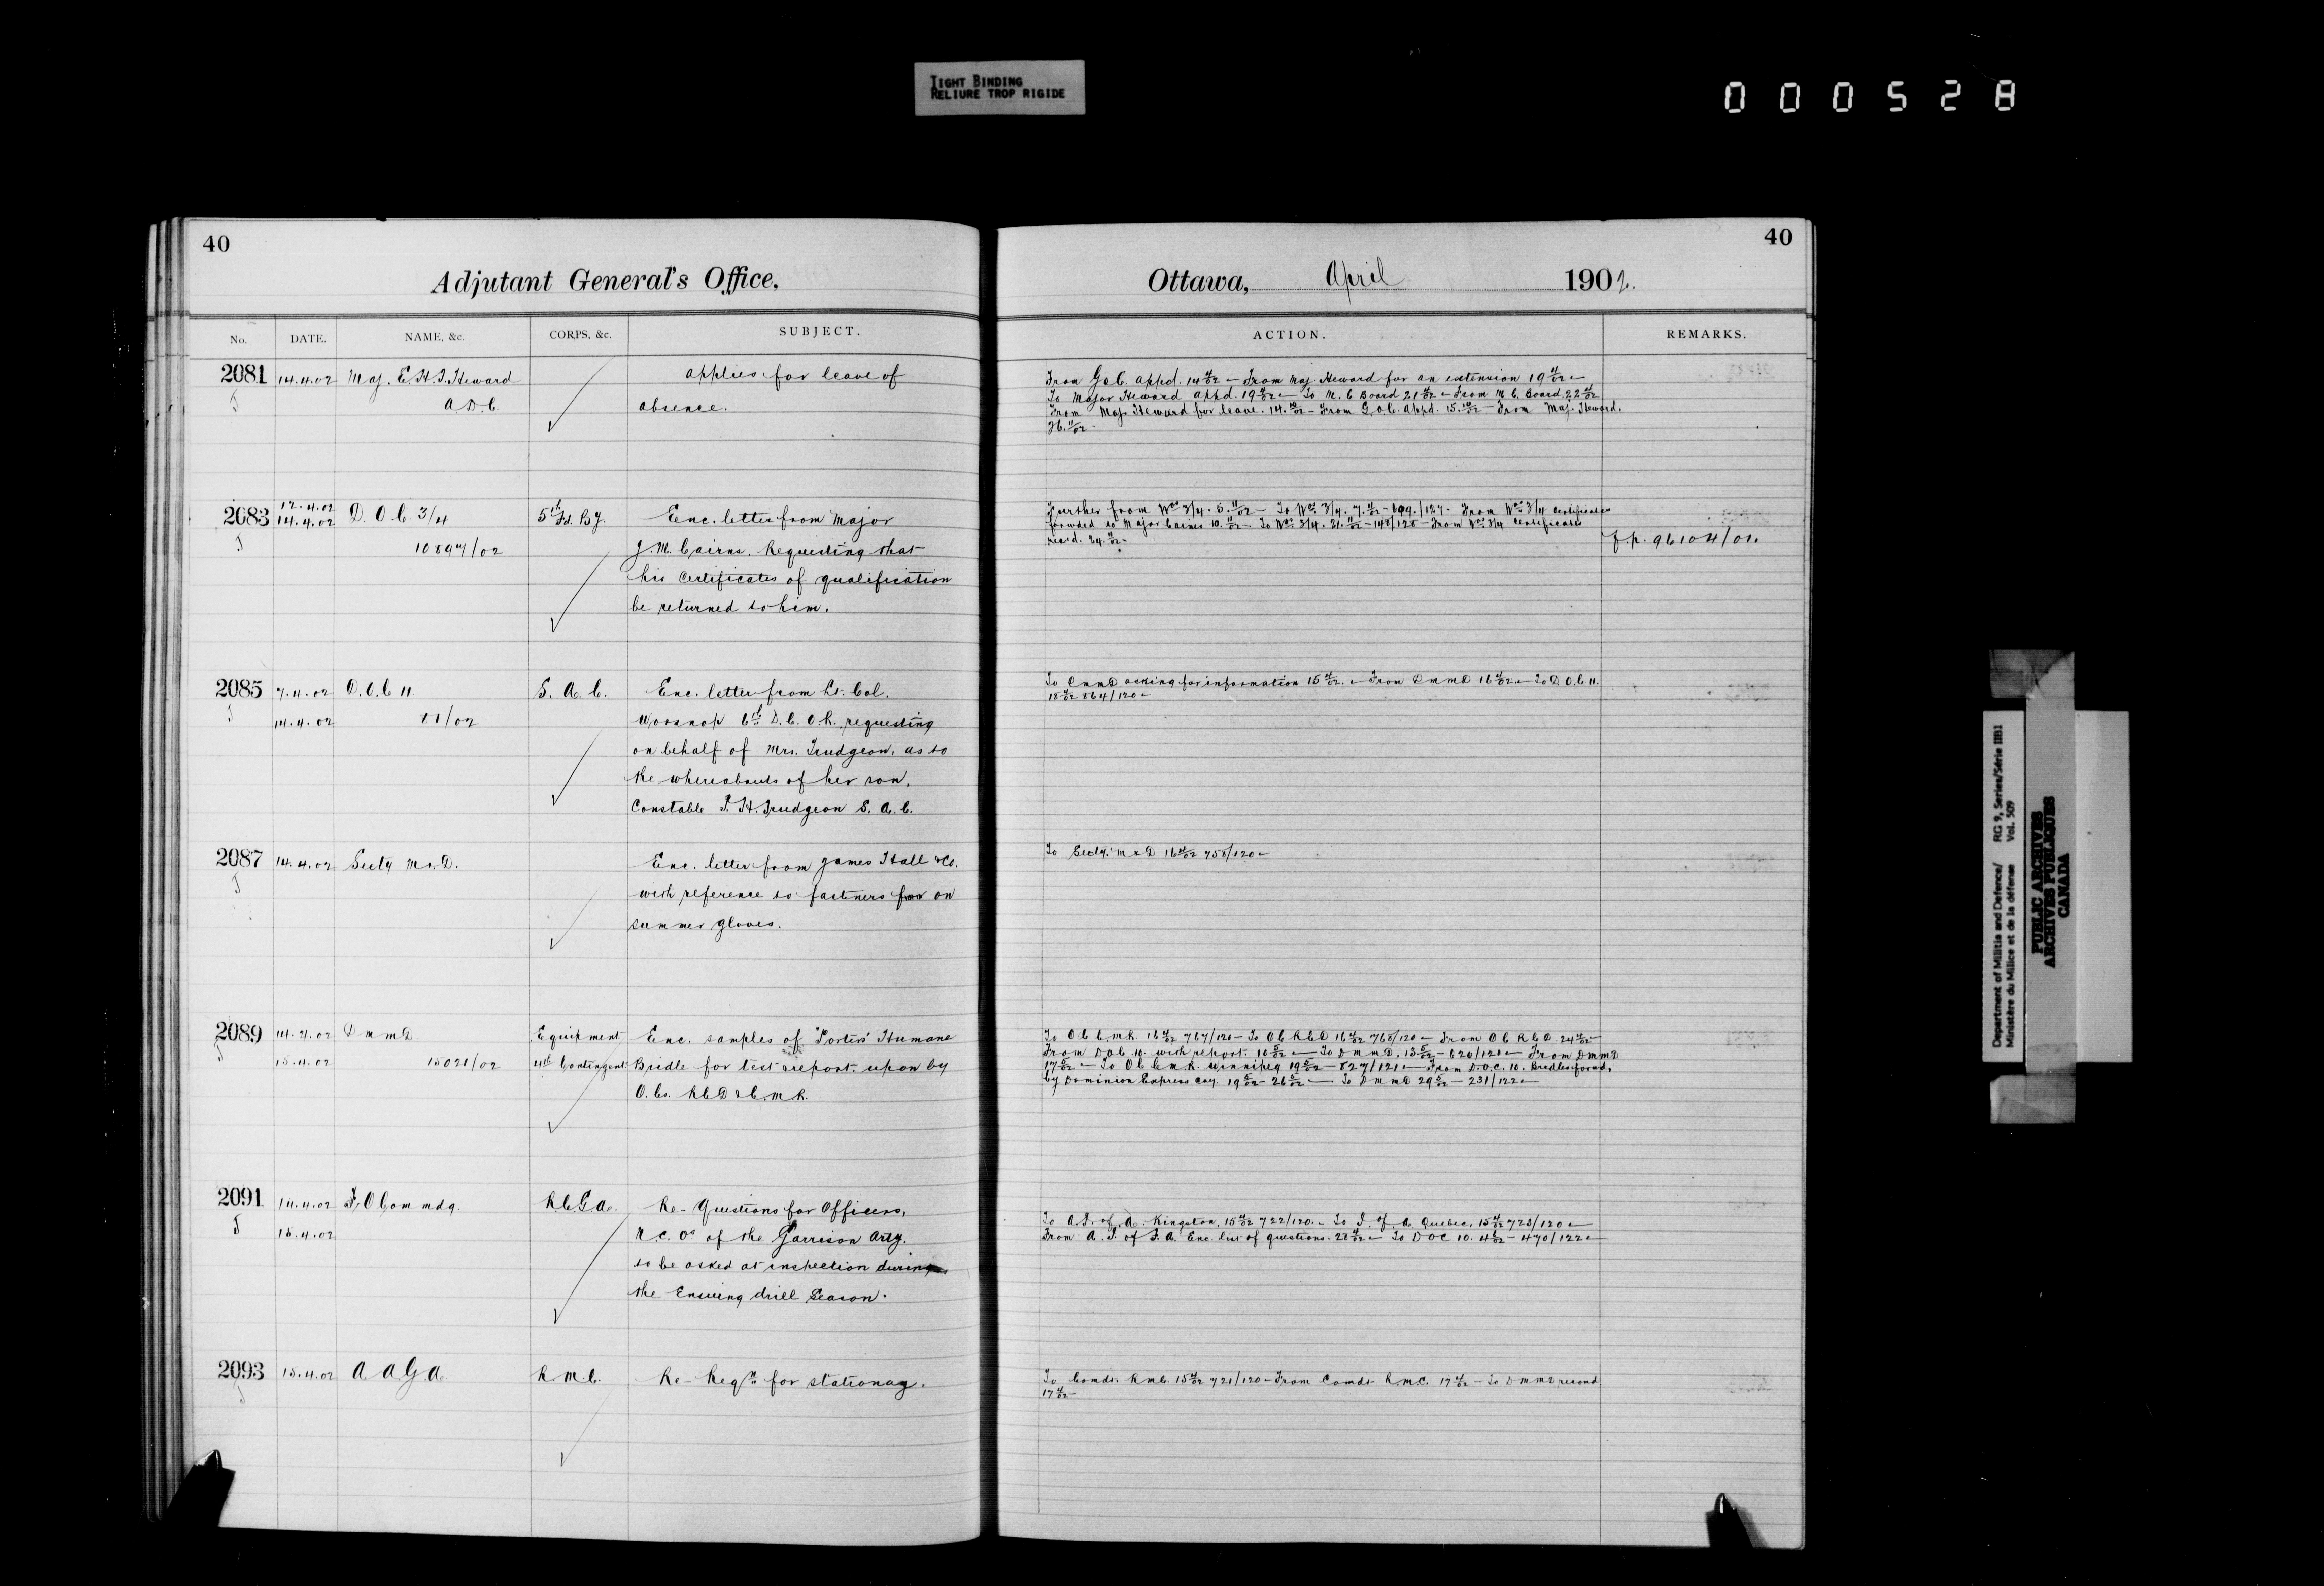 TIGHT BINDING
RELIURE TROP RIGIDE
000528
40
Adjutant General's Office,
No. DATE. NAME, &c. CORPS, &c. SUBJECT.
2081 14.4.02 Maj. E.H.T. Heward applies for leave of
A.D.C. absence.
2083 12.4.02
14.4.02 D.O.C. 3/4 5th Fd. By. Enc. letter from Major
10897/02 J.M. Cairns. Requesting that
his Certificates of qualification
be returned to him.
2085 7.4.02 D.O.C. 11 S.A.C. Enc. letter from Lt. Col.
14.4.02 11/02 Worsnop 6th D.C.O.R. requesting
on behalf of Mrs. Trudgeon, as to
the whereabouts of her son,
Constable T.H. Trudgeon S.A.C.
2087 14.4.02 Secty M&D. Enc. letter from James Hall & Co.
with reference to fasteners for on
summer gloves.
2089 14.4.02 D M M D. Equipment Enc. samples of "Porter's" Humane
15.4.02 15021/02 4th Contingent Bridle for test & report upon by
O.Cs. RCD & C.M.R.
2091 14.4.02 F.O Commdg. R.C.G.A. Re- Questions for Officers,
15.4.02 N.C.Os of the Garrison Arty.
to be asked at inspection during
the Ensuing drill Season.
2093 15.4.02 A A G A. R M C. Re- Reqn for stationary.
40
Ottawa, April 1902.
ACTION. REMARKS.
From G.O.C. appd. 14 4/02 - From Maj Heward for an extension 19 4/02 -
To Major Heward appd. 19 4/02 - To M.C Board 21 4/02 - From M.C. Board 22 4/02
From Maj. Heward for leave. 14. 10/02 - From G.O.C. appd. 15. 10/02 - From Maj. Heward.
26. 11/02 -
Further from Nos 3/4. 5. 11/02 - To Nos 3/4. 7. 11/02 - 699/127 - From Nos 3/4 certificates
forwded to Major Cairns 10. 11/02 - To Nos 3/4. 21. 11/02 - 148/128 - From Nos 3/4 certificates
rec'd. 24. 11/02 -
f.p. 96104/01.
To asking for information 15 4/02. - From D M M D 16 4/02 - To D.O.C 11.
18 4/02 864/120 -
To Secty. M&D 16 4/02 758/120 -
To O.C C.M.R. 16 4/02 767/120 - To O.C R.C.D 16 4/02 768/120 - From O.C R.C.D. 24 4/02 -
From D.O.C. 10. with report. 10 5/02 - To D M M D. 13 5/02 - 620/121 - From D M M D
17 5/02 - To O.C C.M.R. Winnipeg 19 5/02 - 827/121 - From D.O.C. 10. Bridles forwd.
by Dominion Express Coy. 19 5/02 - 26 5/02 - To D M M D 29 5/02 - 231/122 -
To A.I. of A. Kingston, 15 4/02 722/120. - To I. of A. Quebec, 15 4/02 723/120 -
From A.I. of F.A. Enc. list of questions. 28 4/02 - To D O C 10. 4 6/02 - 470/122 -
To Comdt. R.M.C. 15 4/02 721/120 - From Comdt R.M.C. 17 4/02 - To D M M D recomd
17 4/02 -
Department of Militia and Defence/
Ministère du Milice et de la défense
RG 9, Series/Série IIB1
Vol. 509
PUBLIC ARCHIVES
ARCHIVES PUBLIQUES
CANADA